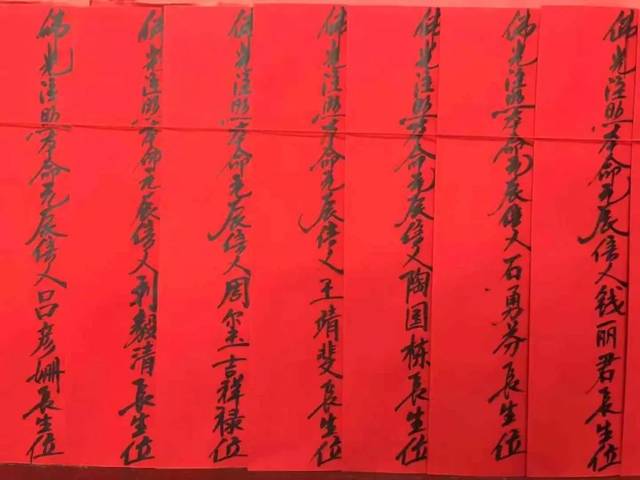 佛光注照本命元辰信人钱丽君長生位
佛光注照本命元辰信人石勇芬長生位
佛光注照本命元辰信人陶国栋長生位
佛光注照本命元辰信人王靖斐長生位
佛光注照本命元辰信人周尔玉吉祥禄位
佛光注照本命元辰信人刘毅清長生位
佛光注照本命元辰信人吕彦姗長生位